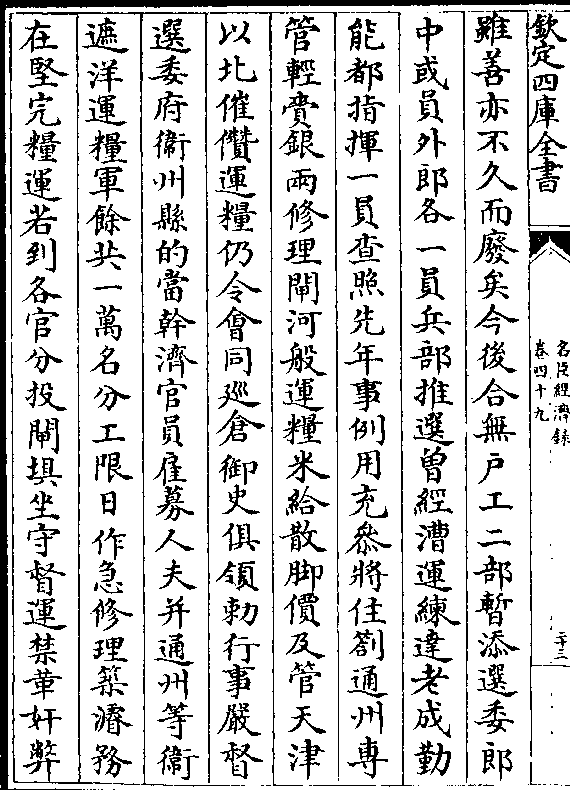 欽定四庫全書
名臣經濟録
卷四十九
二十三
雖善亦不久而廢矣今後合無户工二部暫添選委郎
中或員外郎各一員兵部推選曽經漕運練達老成勤
能都指揮一員查照先年事例用充叅將住劄通州專
管輕賫銀兩修理閘河般運糧米給散脚價及管天津
以北催儹運糧仍令㑹同廵倉御史俱領勅行事嚴督
選委府衞州縣的當幹濟官員雇募人夫并通州等衞
遮洋運糧軍餘共一萬名分工限日作急修理築濬務
在堅完糧運若到各官分投閘埧坐守督運禁革奸弊